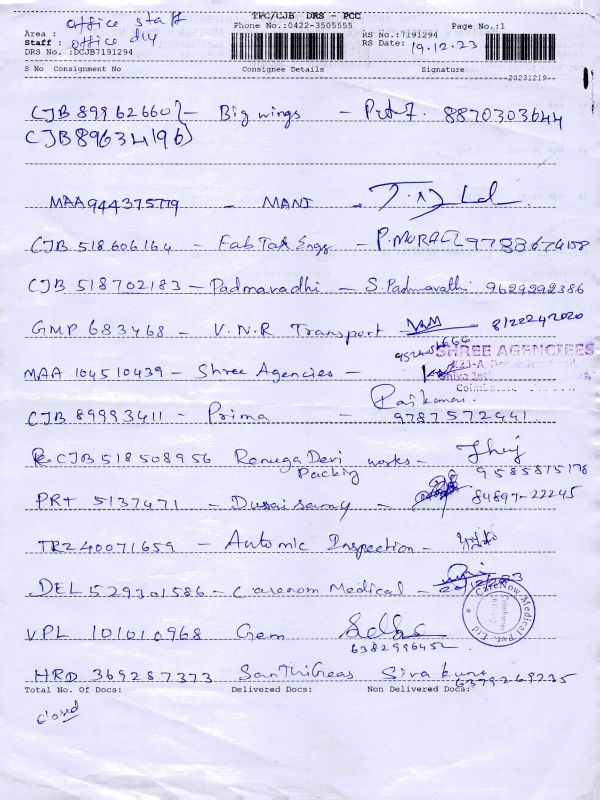 TPC/CJB DRS - PCC
office staff
Phone No.:0422-3505555
Page No.:1
Area :
RS No.:7191294
Staff : office
RS Date: 19.12.23
DRS No.:DCJB7191294
S No Consignment No Consignee Details Signature
20231219
CJB 89962660 } - Big wings - 8870303644
CJB89634196
MAA944375779 - MANI -
CJB 518606164 - Fab Tak Engg - P.MURALI 9788674158
CJB 518702183 - Padmavadhi - S. Padmavathi 9629292386
GMP 683468 - V.N.R Transport
SHREE AGENCIEES
MAA 104510439 - Shree Agencies -
CJB 89993411 - Prima - Rajkumar
9787572441
CJB 518508956 Renuga Devi works -
Packing
9585815178
PRT 5137471 - Duraisamy - 84897-22245
TRZ 40071659 - Automic Inspection -
DEL 529301586 - Carenom Medical -
CareNow Medical Pvt. Ltd.
VPL 101010968 Gem
6382996452
HRD 369287373 SanthiGeas Siva kumar
6379269235
Total No. Of Docs: Delivered Docs: Non Delivered Docs:
closed